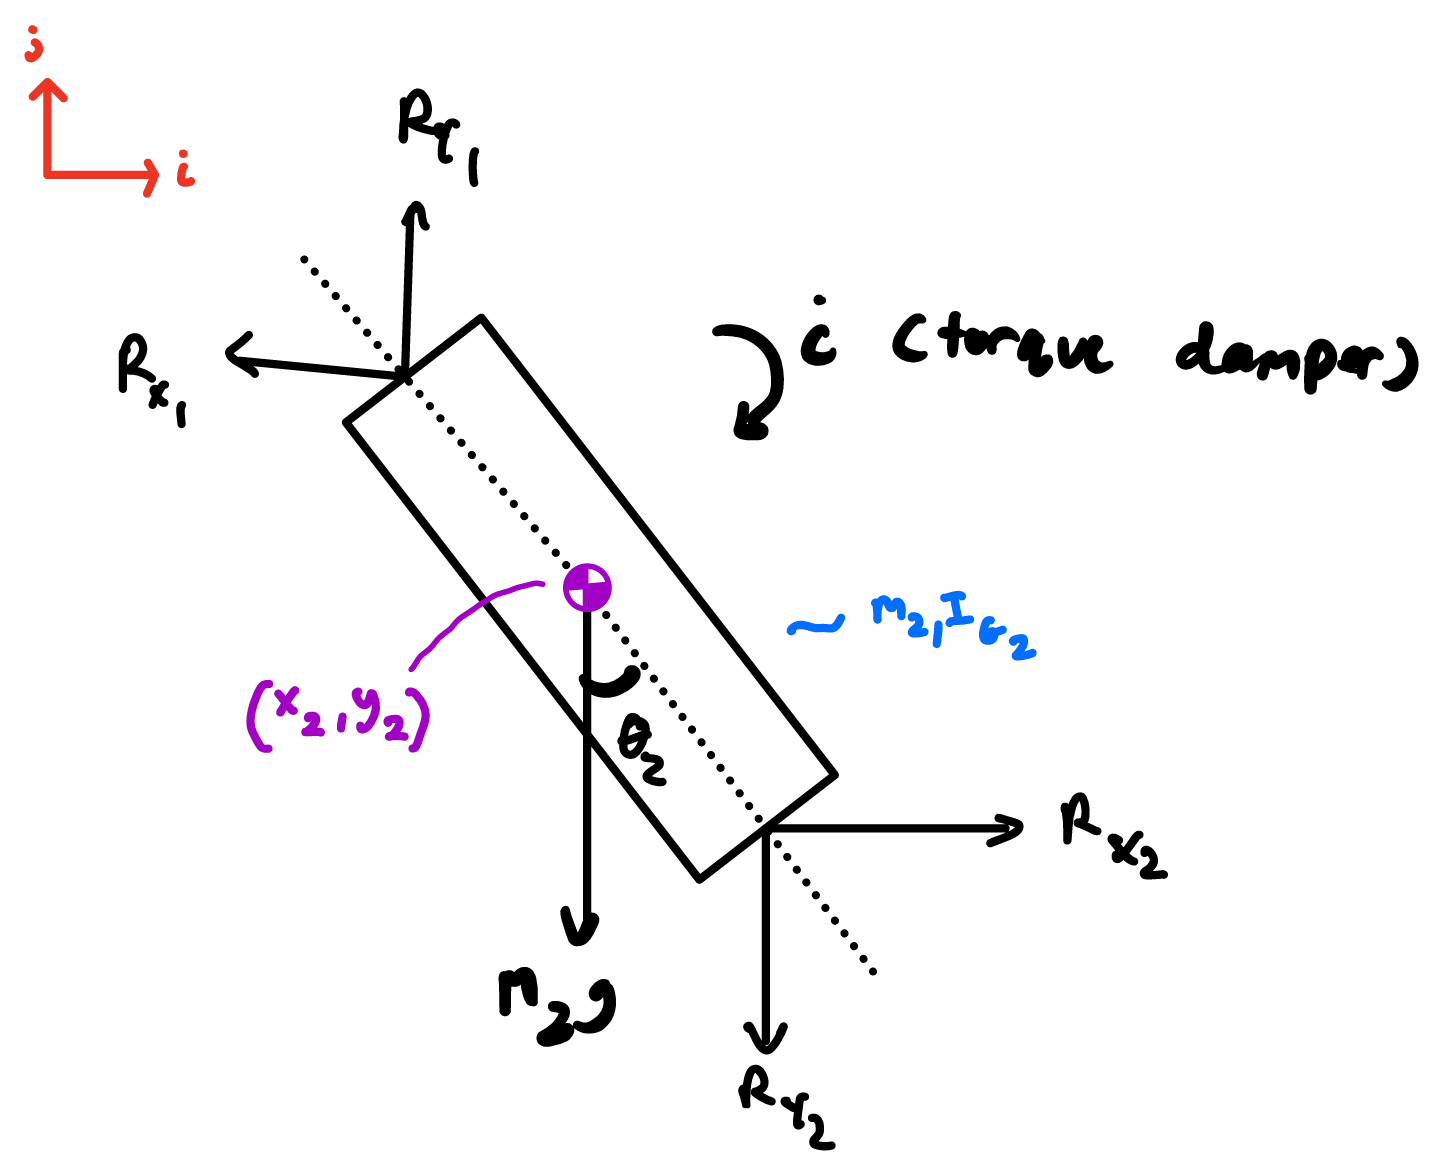 j
i
R_Y_1
R_X_1
ċ (torque damper)
m_2, I_G_2
(x_2, y_2)
θ_2
R_X_2
m_2g
R_Y_2